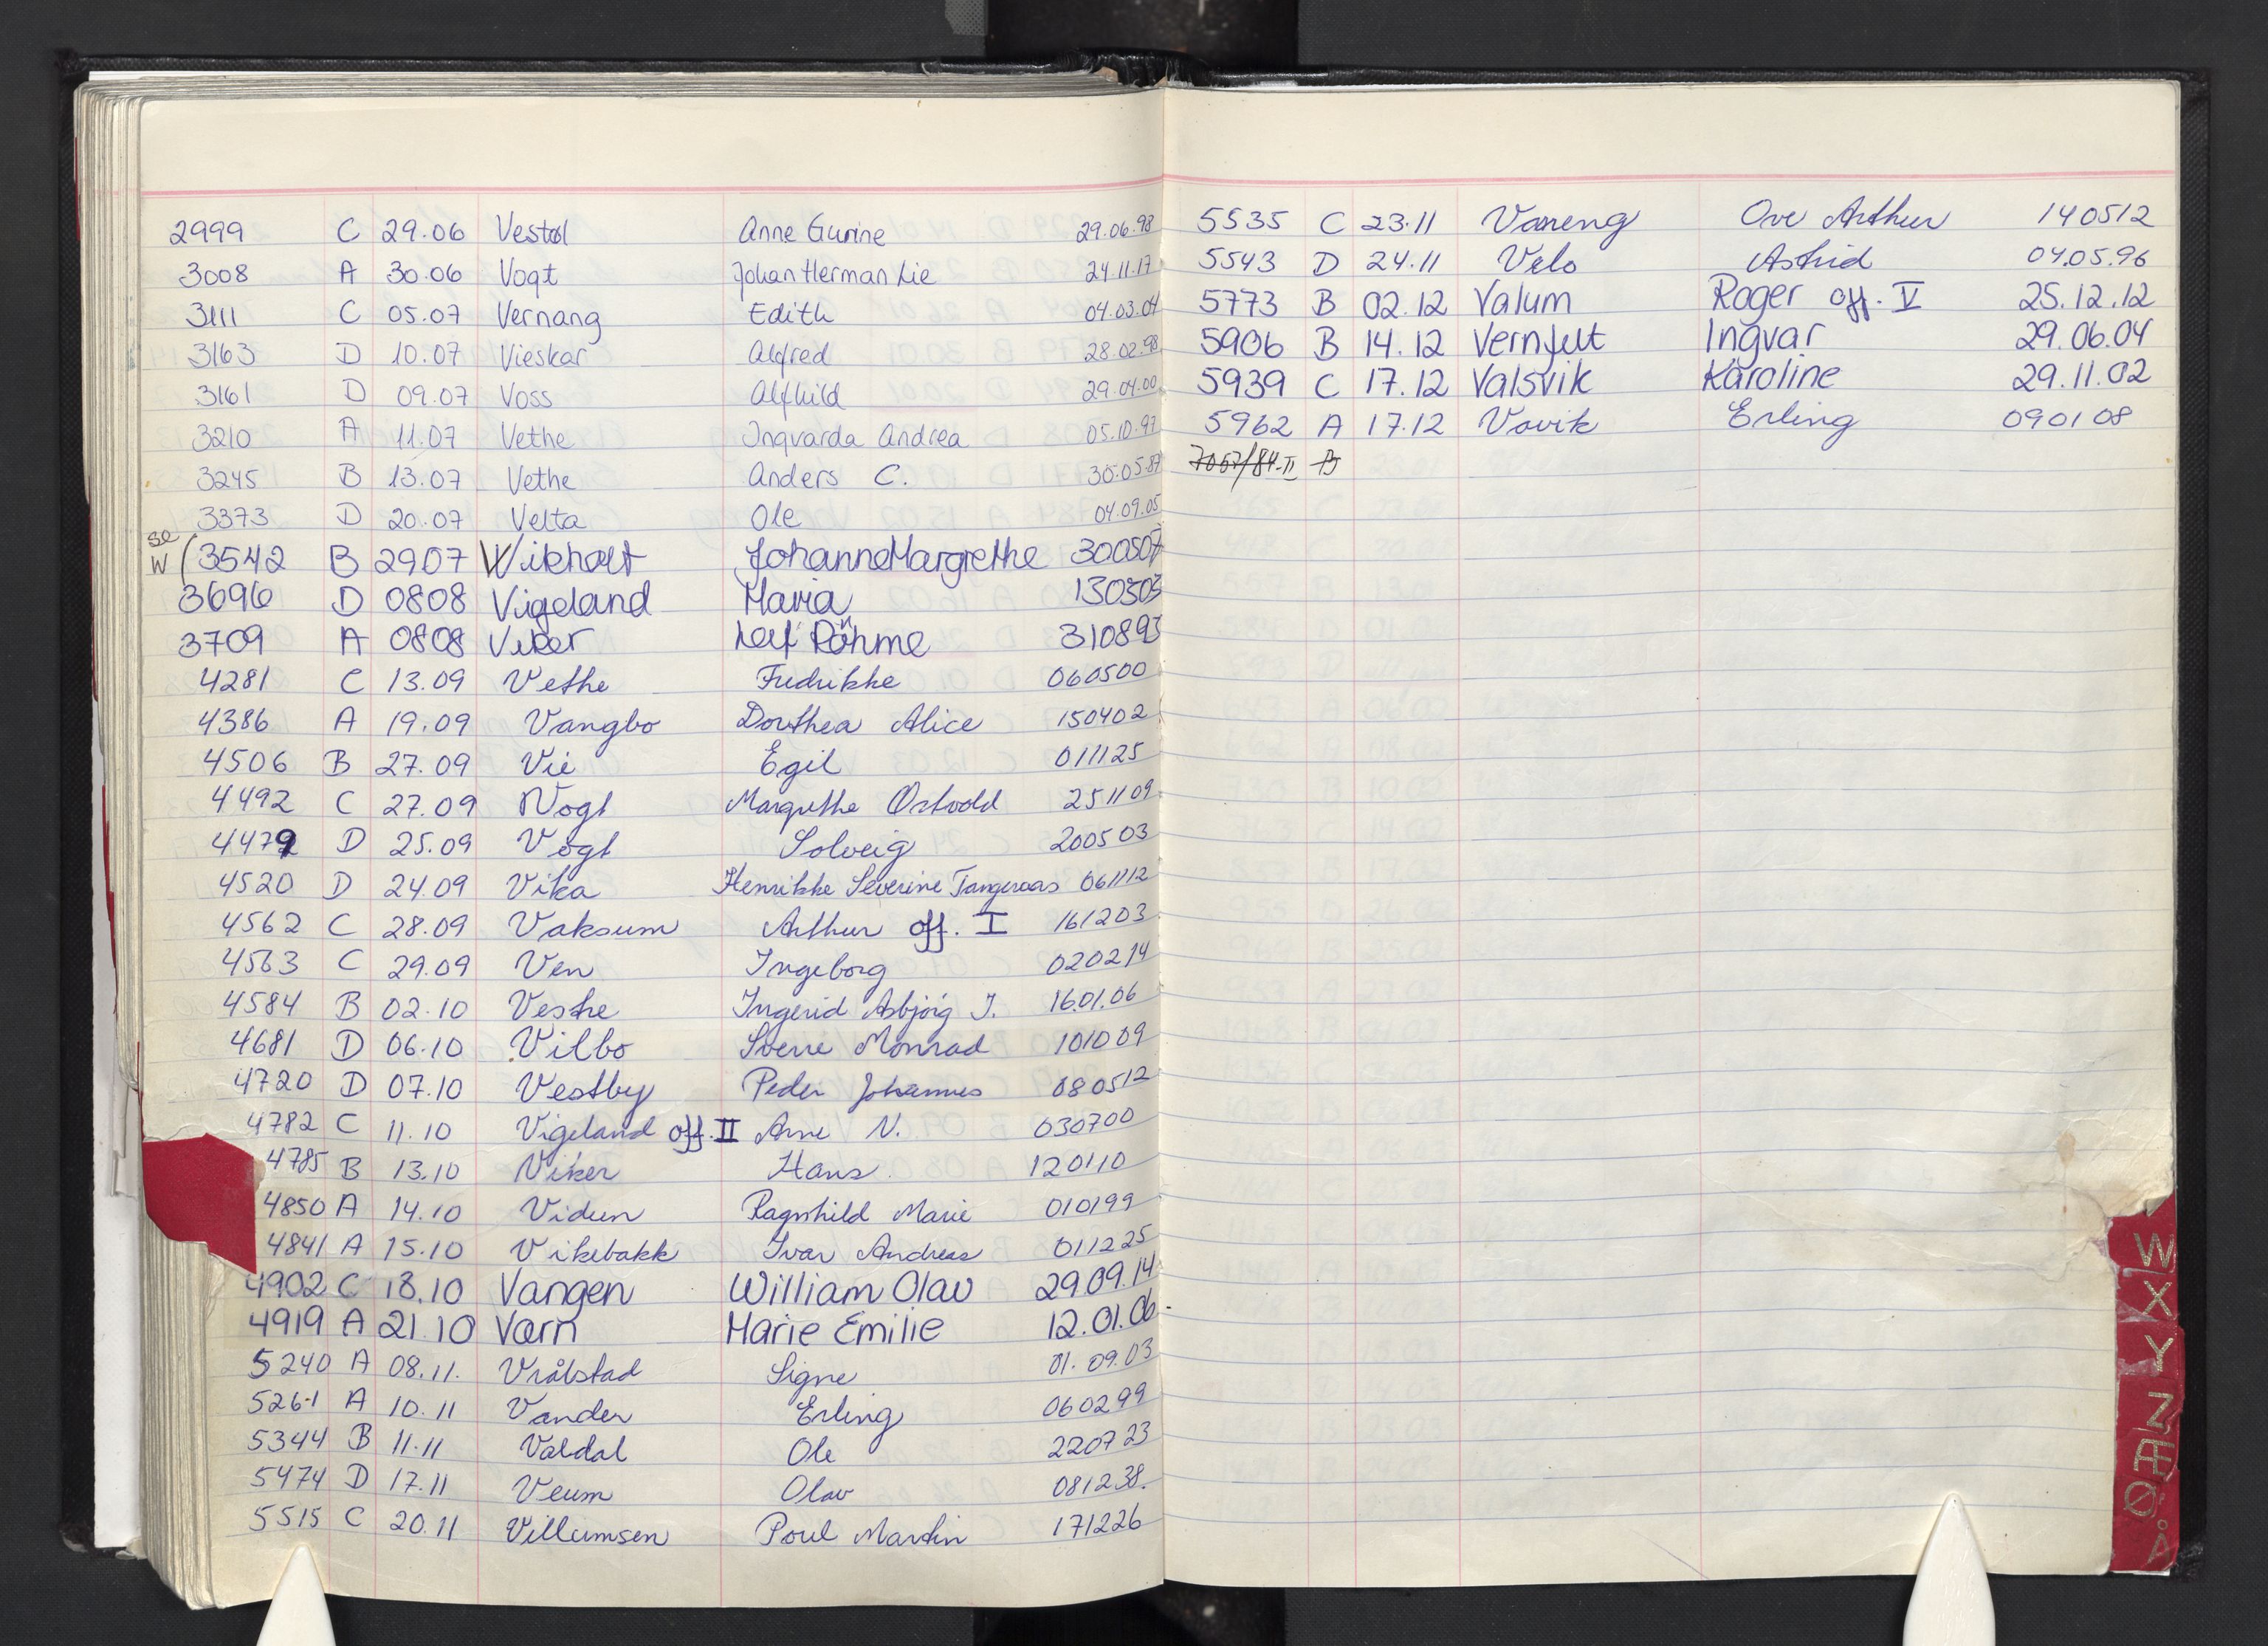 2999 C 29.06 Vestøl Anne Gurine 29.06.98
3008 A 30.06 Vogt Johan Herman Lie 24.11.17
3111 C 05.07 Vernang Edith 04.03.04
3163 D 10.07 Vieskar Alfred 28.02.98
3161 D 09.07 Voss Alfhild 29.04.00
3210 A 11.07 Vethe Ingvarda Andrea 05.10.97
3245 B 13.07 Vethe Anders C. 30.05.87
3373 D 20.07 Velta Ole 04.09.05
se
W (3542 B 2907 Wikholt Johanne Margrethe 300507
3696 D 0808 Vigeland Maria 130303
3709 A 0808 Viker Leif 310893
4281 C 13.09 Vethe Fredrikke 060500
4386 A 19.09 Vangbo Dorthea Alice 150402
4506 B 27.09 Vie Egil 011125
4492 C 27.09 Vogt Margrethe Ostvold 251109
4479 D 25.09 Vogt Solveig 200503
4520 D 24.09 Vika Henrikke Severine Tangeraas 061112
4562 C 28.09 Vaksum Arthur off. I 161203
4563 C 29.09 Ven Ingeborg 020214
4584 B 02.10 Veshe Ingerid Asbjørg J. 16.01.06
4681 D 06.10 Vilbo Sverre Monrad 101009
4720 D 07.10 Vestby Peder Johannes 080512
4782 C 11.10 Vigeland off. II Arne N. 030700
4785 B 13.10 Viker Hans 120110
4850 A 14.10 Vidun Ragnhild Marie 010199
4841 A 15.10 Vikebakk Ivar Andreas 011225
4902 C 18.10 Vangen William Olav 29.09.14
4919 A 21.10 Værn Marie Emilie 12.01.06
5240 A 08.11. Vrålstad Signe 01.09.03
5261 A 10.11 Vander Erling 060299
5344 B 11.11 Valdal Ole 220723
5474 D 17.11 Veum Olav 081238.
5515 C 20.11 Villumsen Poul Martin 171226
5535 C 23.11 Væreng Ove Arthur 140512
5543 D 24.11 Velo Astrid 04.05.96
5773 B 02.12 Valum Roger off. V 25.12.12
5906 B 14.12 Vernfelt Ingvar 29.06.04
5939 C 17.12 Valsvik Karoline 29.11.02
5962 A 17.12 Vavik Erling 090108
7067/84-II B
W
X
Y
Z
Æ
Ø
Å